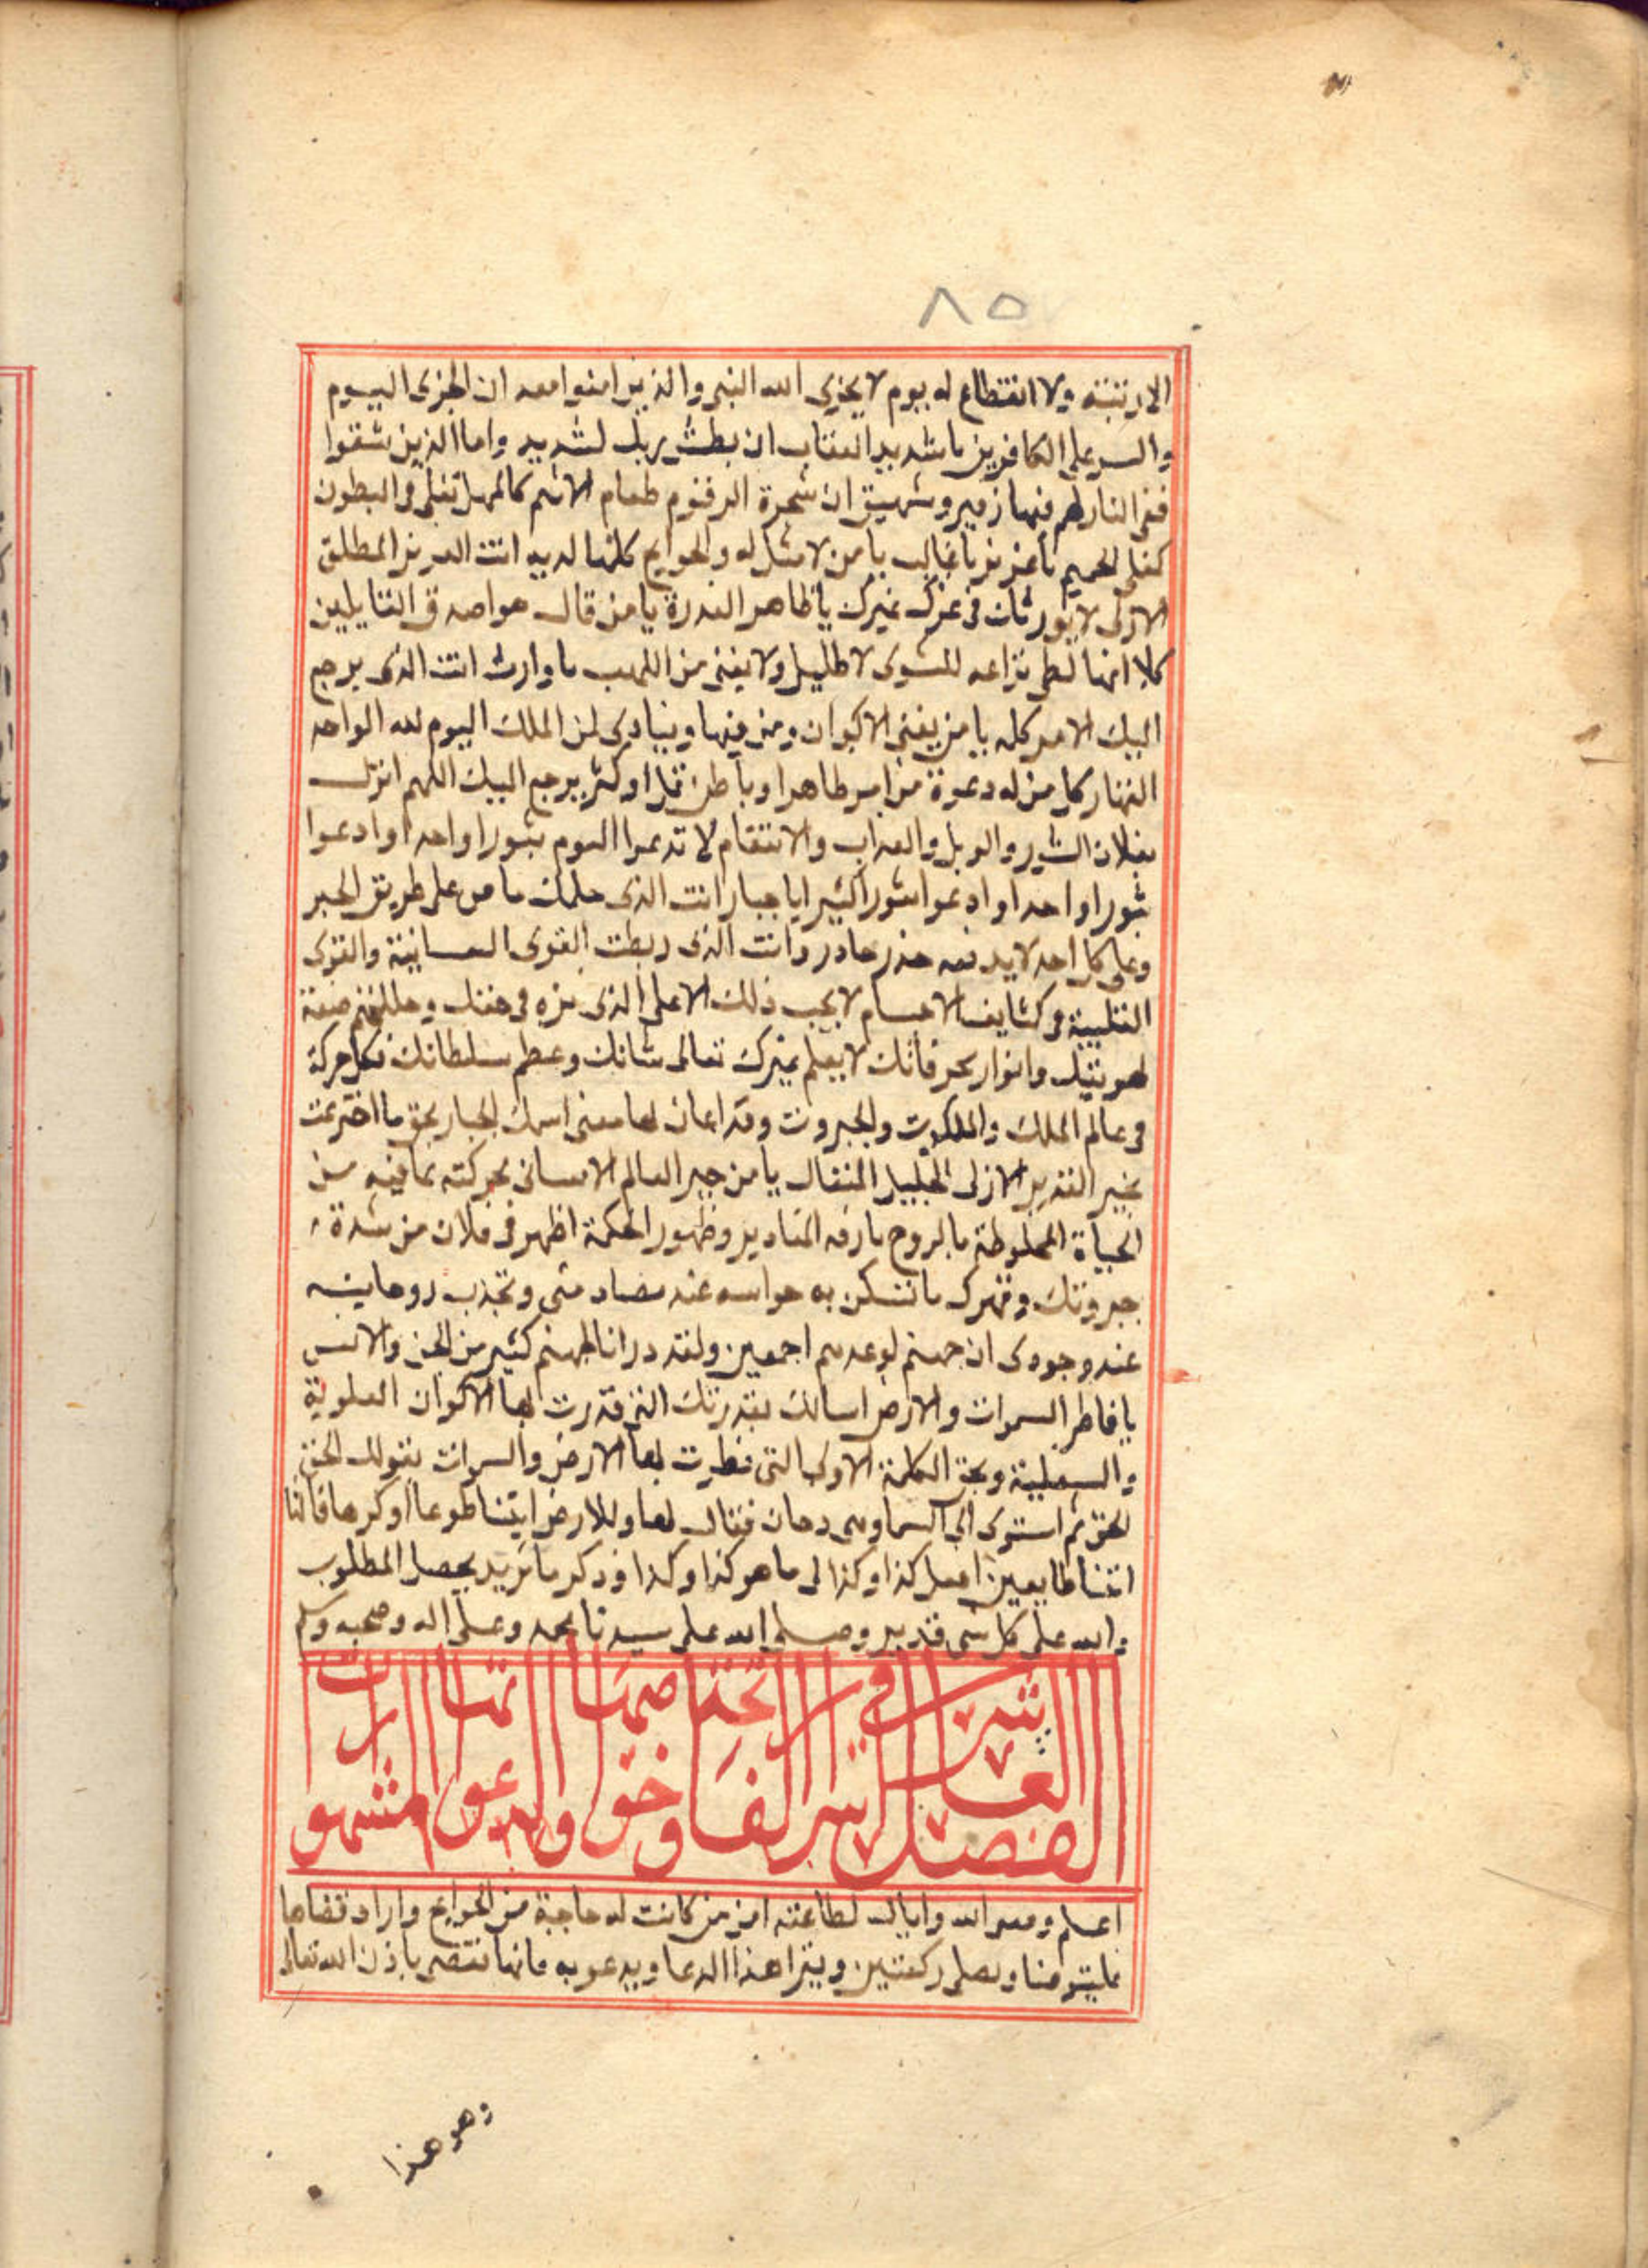 ٨٥
ولا انقطاع له يوم لا يخزي الله النبي والذين امنوا معه ان الخزي اليوم
والسوء على الكافرين يا شديد العقاب ان بطش ربك لشديد واما الذين شقوا
ففي النار لهم فيها زفير وشهيق ان شجرة الزقوم طعام الاثيم كالمهل تغلي في البطون
كغلي الحميم يا عزيز يا غالب يا من لا مثل له والحوايج كلها لديه انت العزيز المطلق
الازلي لا في عزك غيرك يا ظاهر القدرة يا من قال هو اصدق القايلين
كلا انها لظى نزاعة للشوى لا ظليل ولا يغني من اللهب يا وارث انت الذي يرجع
اليك الامر كله يا من يفني الاكوان ومن فيها وينادي لمن الملك اليوم لله الواحد
القهار كل من له دعوة من امر ظاهر او باطن قل او كثر يرجع اليك اللهم انزل
بفلان الثبور والويل والعذاب والانتقام لا تدعوا اليوم ثبورا واحدا وادعوا
ثبورا واحدا وادعوا ثبورا كثيرا يا جبار انت الذي حكمك ماض على طريق الجبر
وعلى كل احد لا يدفعه حذر حاذر وانت الذي ربطت القوى النفسانية والقوى
القلبية في كثايف الاجسام لا يجب ذلك الا على الذي نزه في
لهويتك وانوار فانك لا يعلم غيرك تعالى شانك وعظم سلطانك فكل حركة
في عالم الملك والملكوت والجبروت وقد اعان لها معنى اسمك الجبار بحق ما اخترعت
القدير الازلي الجليل المتعال يا من جبر العالم الانساني بحركته بما فيه من
الحياة المخلوطة بالروح المقادير وظهور الحكمة اظهر في فلان من شدة
جبروتك وقهرك ما تسكن به حواسه عند مضادمتي وتجذب روحانيته
عند وجودي ان جهنم لموعدهم اجمعين ولقد درانا لجهنم كثير من الجن والانس
يا فاطر السموات والارض اسالك بقدرتك التي قدرت بها الاكوان العلوية
والسفلية وبحق الكلمة الاولى التي فطرت بها الارض والسموات بقولك الحق
الحق ثم استوى الى السما وهي دخان فقال لها وللارض ايتيا طوعا او كرها قالتا
اتينا طايعين افعل كذا وكذا لي ما هو كذا وكذا وذكر ما تريد يحصل المطلوب
والله على كل شي قدير وصلى الله على سيدنا محمد وعلى اله وصحبه وسلم
الفصل العاشر في شرح سر الفاتحة وخواصها ودعواتها المشهورات
اعلم وفقني الله واياك لطاعته ان من كانت له حاجة من الحوايج واراد قضاها
فليتوضا ويصلي ركعتين ويقرا هذا الدعا ويدعو به فانها تقضى باذن الله تعالى
وهو هذا